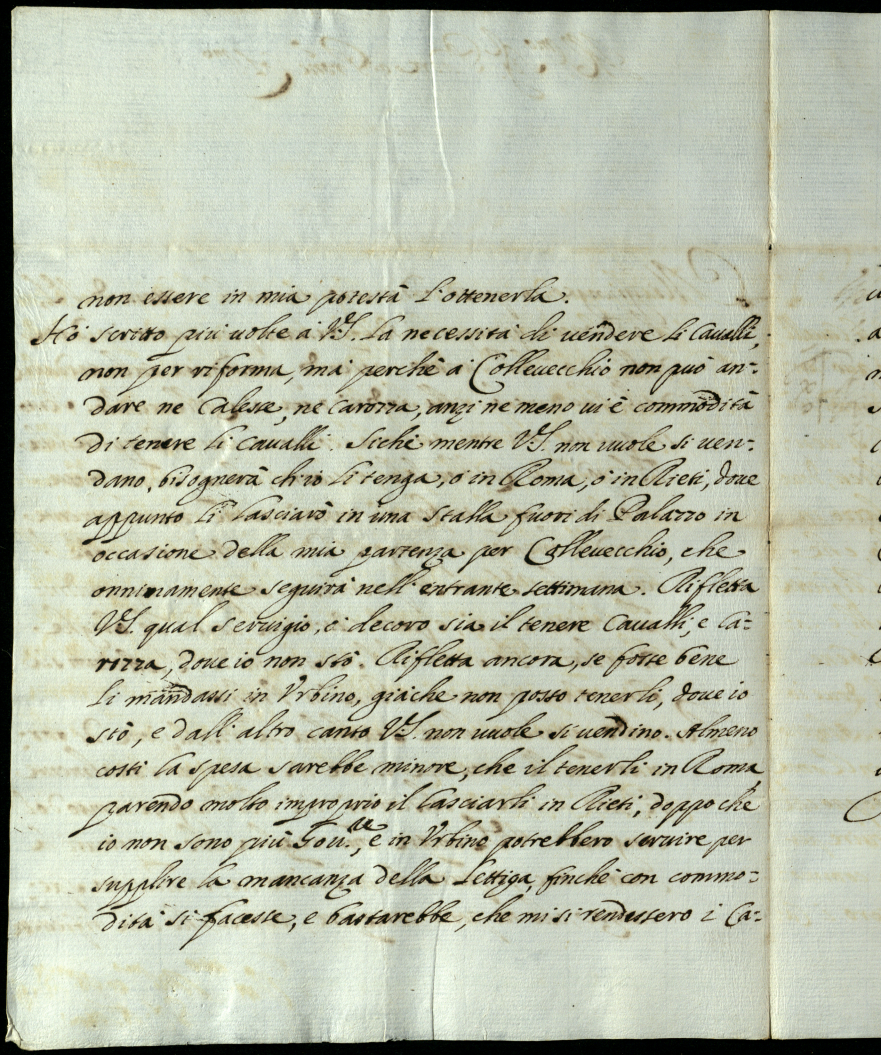 non essere in mia potestà l'ottenerla.
Hò scritto più volte à V.S. la necessità di vendere li Cavalli,
non per riforma, mà perchè à Collevecchio non può an-
dare ne Calesse, ne Carozza, anzi ne meno vi è commodità
di tenere li Cavalli. Sichè mentre V.S. non vuole si ven-
dano, bisognerà ch'io li tenga, ò in Roma, ò in Rieti, dove
appunto li lasciarò in una stalla fuori di Palazzo in
occasione della mia partenza per Collevecchio, che
onninamente seguirà nell'entrante settimana. Rifletta
V.S. qual servigio, e decoro sia il tenere Cavalli, e Ca-
rozza, dove io non stò. Rifletta ancora, se fosse bene
li mandassi in Urbino, giache non posso tenerli, dove io
stò, e dall'altro canto V.S. non vuole si vendino. Almeno
costì la spesa sarebbe minore, che il tenerli in Roma,
parendo molto improprio il lasciarli in Rieti, doppo che
io non sono più Gov.re, e in Urbino potrebbero servire per
supplire la mancanza della Lettiga, finchè con commo-
dità si facesse, e bastarebbe, che mi si rendessero i Ca-